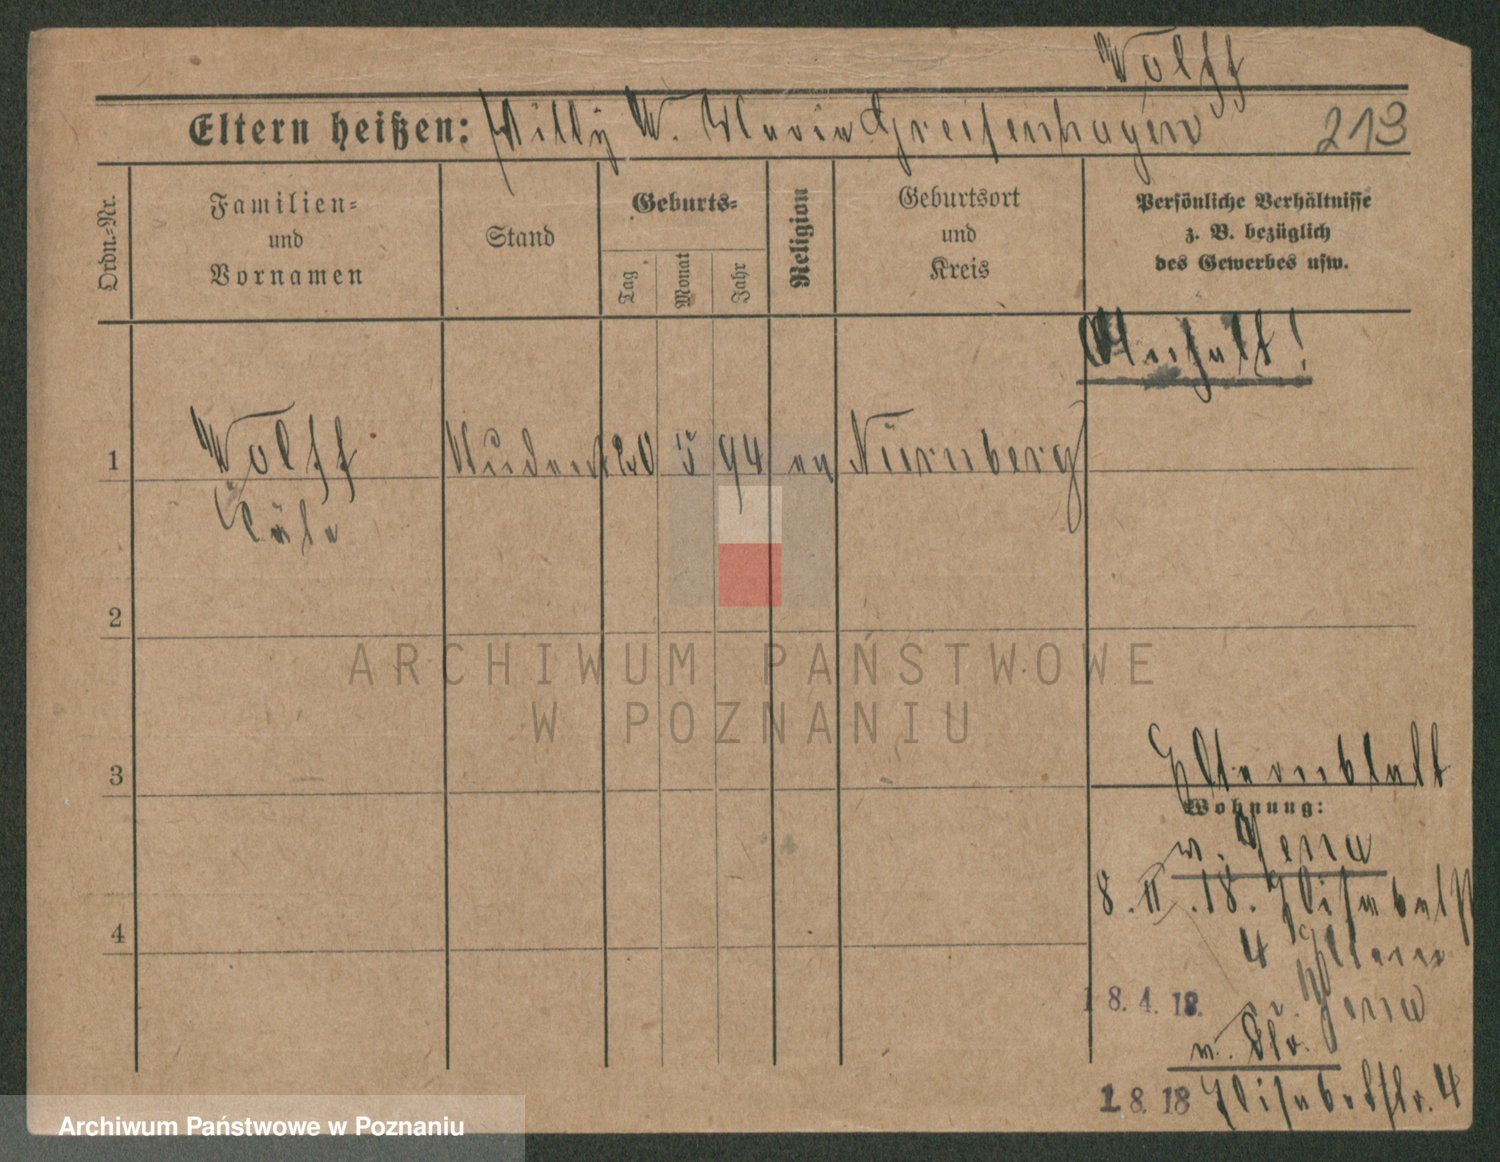 Wolff
Eltern heißen: Willy W. Maria Greifenhagen 213
Ordn.-Nr.
Familien-
und
Vornamen
Stand
Geburts-
Tag
Monat
Jahr
Religion
Geburtsort
und
Kreis
Persönliche Verhältnisse
z. B. bezüglich
des Gewerbes usw.
1
Wolff
Student 20 5 94 ev Nürnberg
Käte
2
ARCHIWUM PAŃSTWOWE
W POZNANIU
3
Elternblatt
Wohnung:
v. Jena
8. II. 18. Elisabetst
4 Eltern
18. 4. 18.
n. Jena
v.
1. 8. 18 Elisabetstr. 4
4
Archiwum Państwowe w Poznaniu